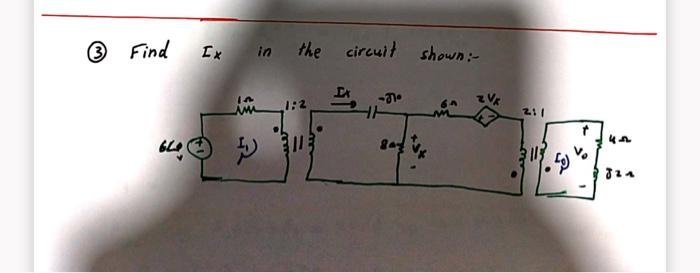 ③ Find Ix in the circuit shown:-
1Ω 1:2 Ix 6Ω 2Vx 2:1
I₁ 8Ω + Vx - I₀ + V₀ - 4Ω
j2Ω